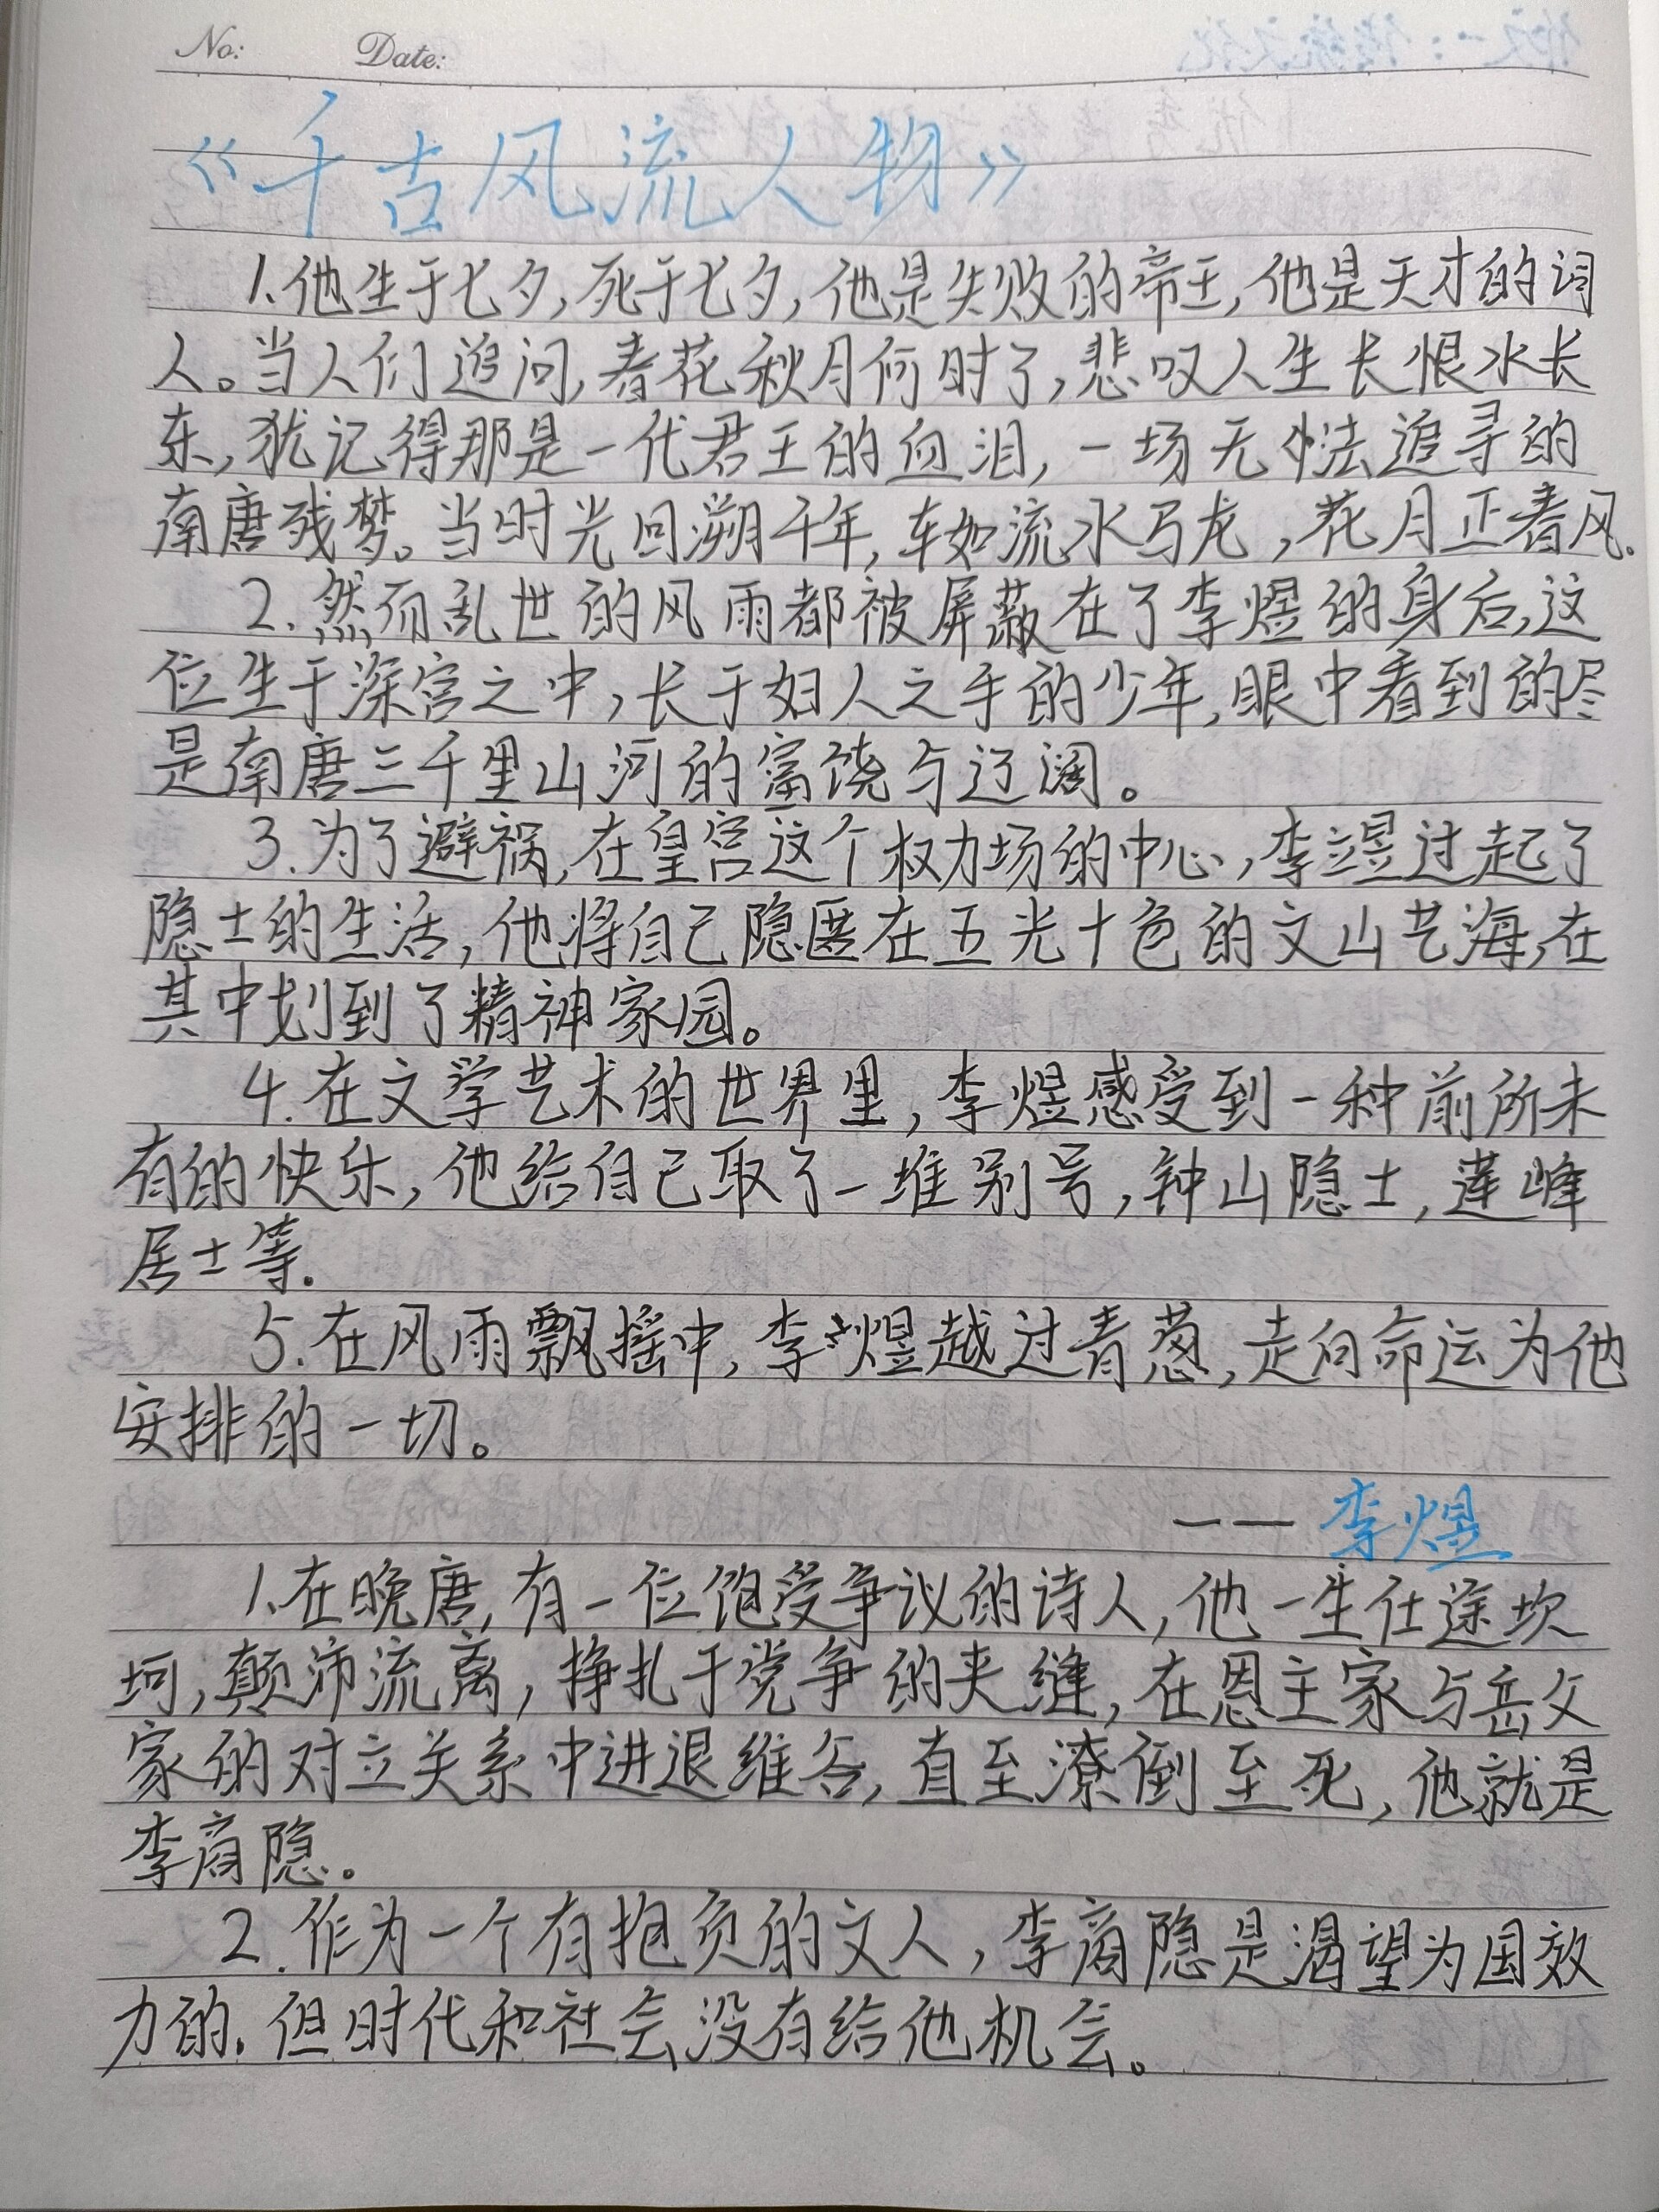 No: Date:
《千古风流人物》
1.他生于七夕,死于七夕,他是失败的帝王,他是天才的词
人。当人们追问,春花秋月何时了,悲叹人生长恨水长
东,犹记得那是一代君王的血泪,一场无法追寻的
南唐残梦。当时光回溯千年,车如流水马龙,花月正春风。
2.然而乱世的风雨都被屏蔽在了李煜的身后,这
位生于深宫之中,长于妇人之手的少年,眼中看到的尽
是南唐三千里山河的富饶与辽阔。
3.为了避祸,在皇宫这个权力场的中心,李煜过起了
隐士的生活,他将自己隐匿在五光十色的文山艺海,在
其中划到了精神家园。
4.在文学艺术的世界里,李煜感受到一种前所未
有的快乐,他给自己取了一堆别号,钟山隐士,莲峰
居士等.
5.在风雨飘摇中,李煜越过青葱,走向命运为他
安排的一切。
——李煜
1.在晚唐,有一位饱受争议的诗人,他一生仕途坎
坷,颠沛流离,挣扎于党争的夹缝,在恩主家与岳父
家的对立关系中进退维谷,直至潦倒至死,他就是
李商隐。
2.作为一个有抱负的文人,李商隐是渴望为国效
力的.但时代和社会没有给他机会。